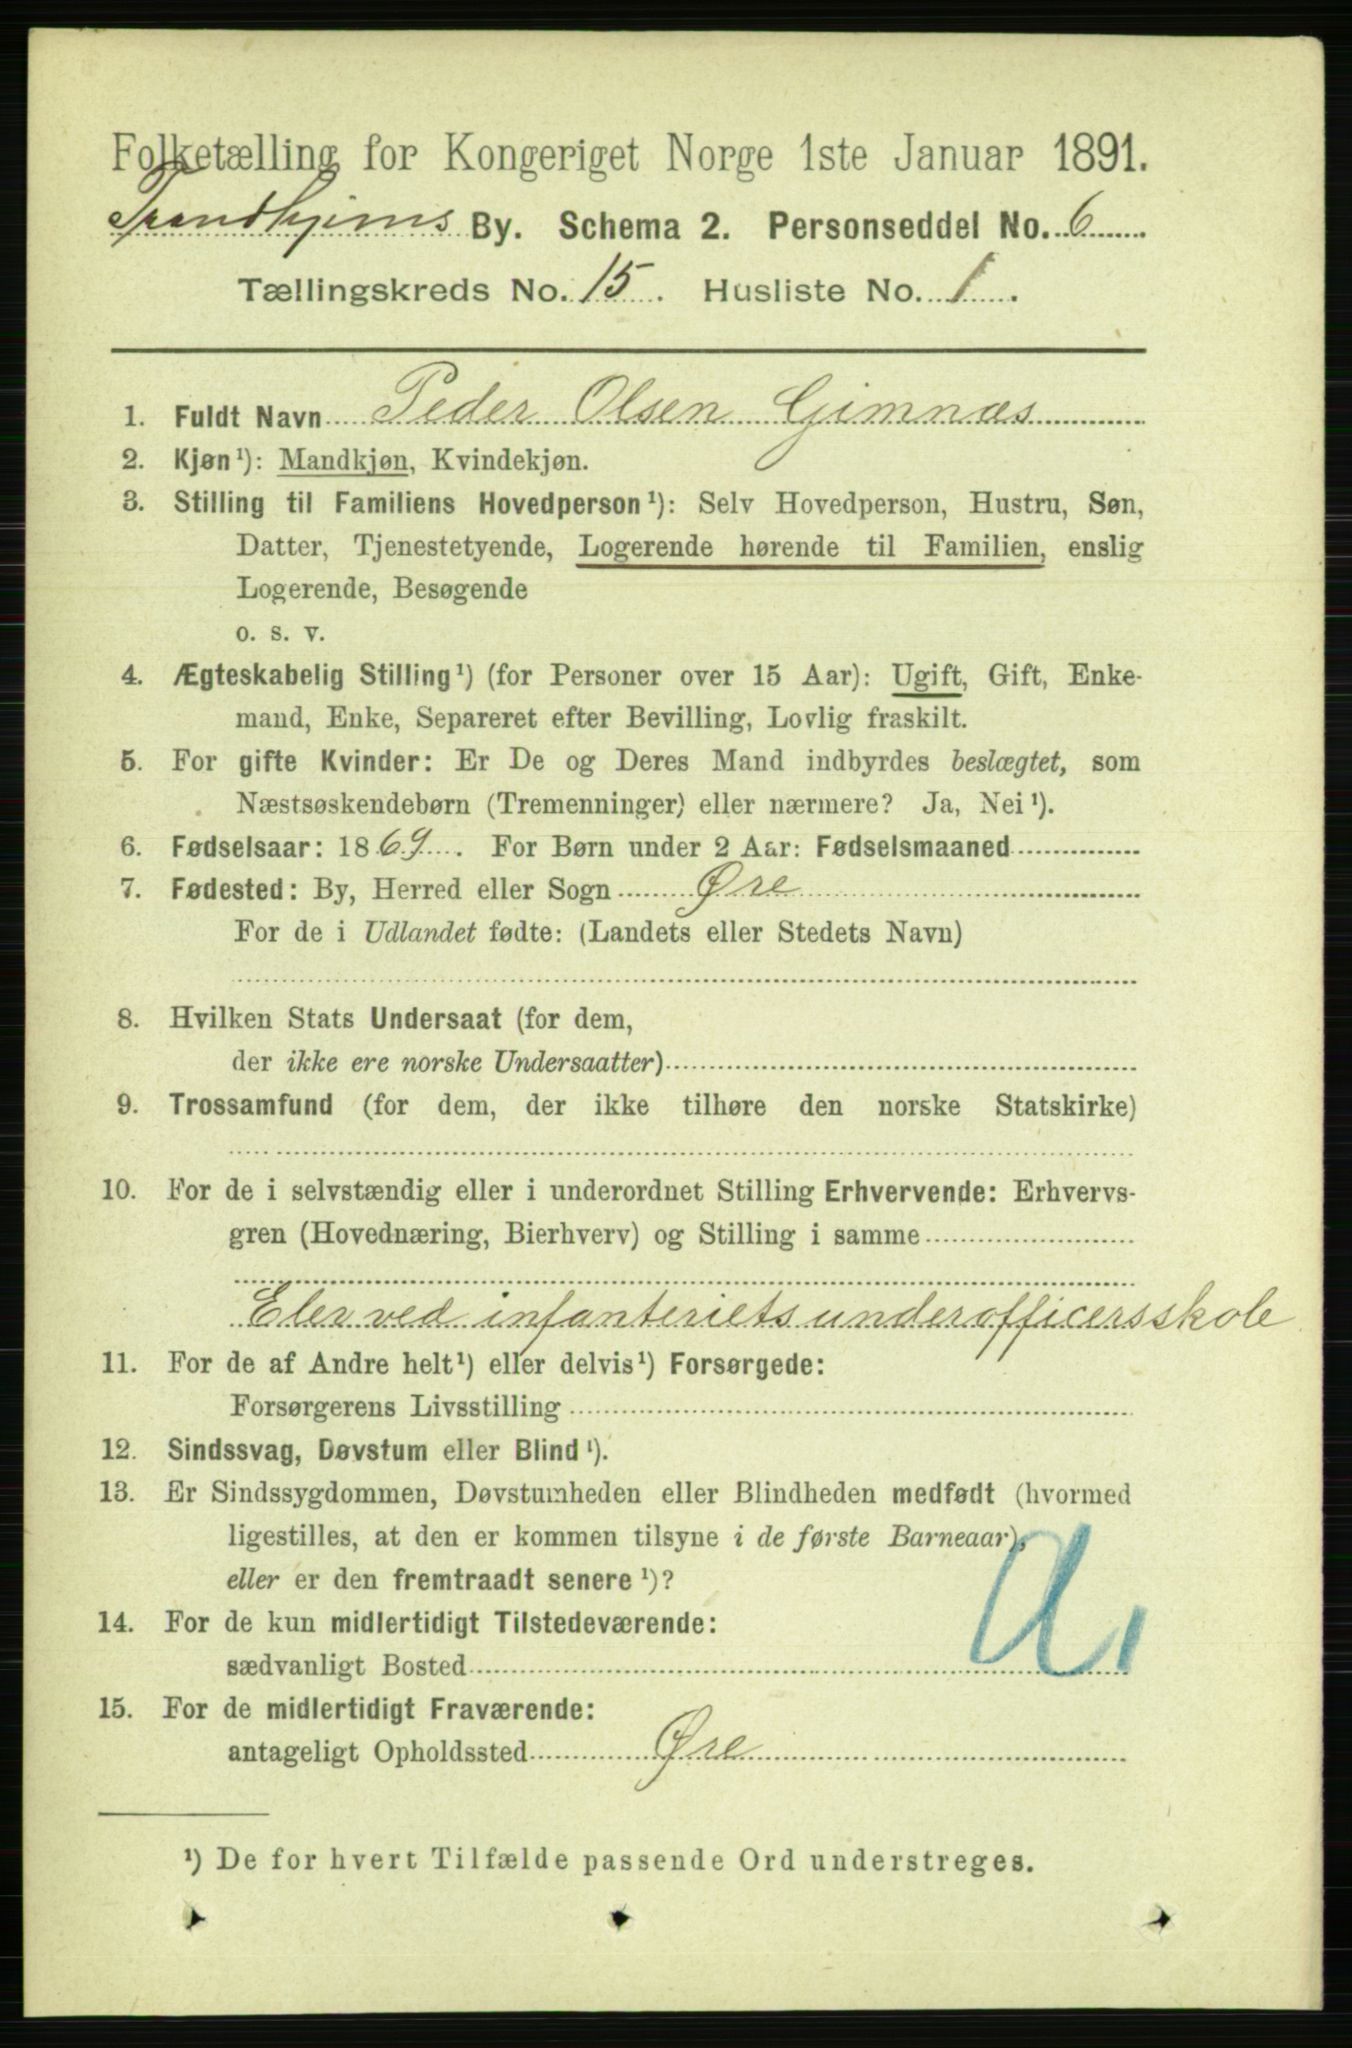 Folketælling for Kongeriget Norge 1ste Januar 1891.
Trondhjems By. Schema 2. Personseddel No. 6
Tællingskreds No. 15. Husliste No. 1.
1. Fuldt Navn Peder Olsen Gimnæs
2. Kjøn¹): Mandkjøn, Kvindekjøn.
3. Stilling til Familiens Hovedperson¹): Selv Hovedperson, Hustru, Søn,
Datter, Tjenestetyende, Logerende hørende til Familien, enslig
Logerende, Besøgende
o. s. v.
4. Ægteskabelig Stilling¹) (for Personer over 15 Aar): Ugift, Gift, Enke-
mand, Enke, Separeret efter Bevilling, Lovlig fraskilt.
5. For gifte Kvinder: Er De og Deres Mand indbyrdes beslægtet, som
Næstsøskendebørn (Tremenninger) eller nærmere? Ja, Nei¹).
6. Fødselsaar: 1869. For Børn under 2 Aar: Fødselsmaaned
7. Fødested: By, Herred eller Sogn Øre
For de i Udlandet fødte: (Landets eller Stedets Navn)
8. Hvilken Stats Undersaat (for dem,
der ikke ere norske Undersaatter)
9. Trossamfund (for dem, der ikke tilhøre den norske Statskirke)
10. For de i selvstændig eller i underordnet Stilling Erhvervende: Erhvervs-
gren (Hovednæring, Bierhverv) og Stilling i samme
Elev ved infanteriets underofficersskole
11. For de af Andre helt¹) eller delvis¹) Forsørgede:
Forsørgerens Livsstilling
12. Sindssvag, Døvstum eller Blind¹).
13. Er Sindssygdommen, Døvstumheden eller Blindheden medfødt (hvormed
ligestilles, at den er kommen tilsyne i de første Barneaar),
eller er den fremtraadt senere¹)?
14. For de kun midlertidigt Tilstedeværende:
sædvanligt Bosted
15. For de midlertidigt Fraværende:
antageligt Opholdssted Øre
¹) De for hvert Tilfælde passende Ord understreges.